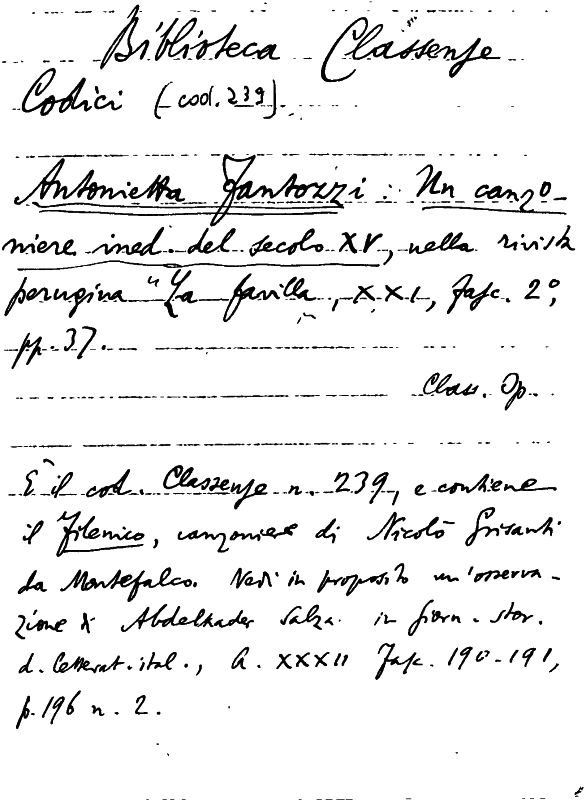 Biblioteca Classense
Codici (cod. 239).
Antonietta Fantozzi: Un canzo-
niere ined. del secolo XV, nella rivista
perugina "La favilla, XXI, fasc. 2°,
pp. 37.
Class. Op.
È il cod. Classense n. 239, e contiene
il Filenico, canzoniere di Nicolò
da Montefalco. Vedi in proposito un'osserva-
zione di Abdelkader Salza in Giorn. stor.
d. letterat. ital., A. XXXII Fasc. 190-191,
p. 196 n. 2.